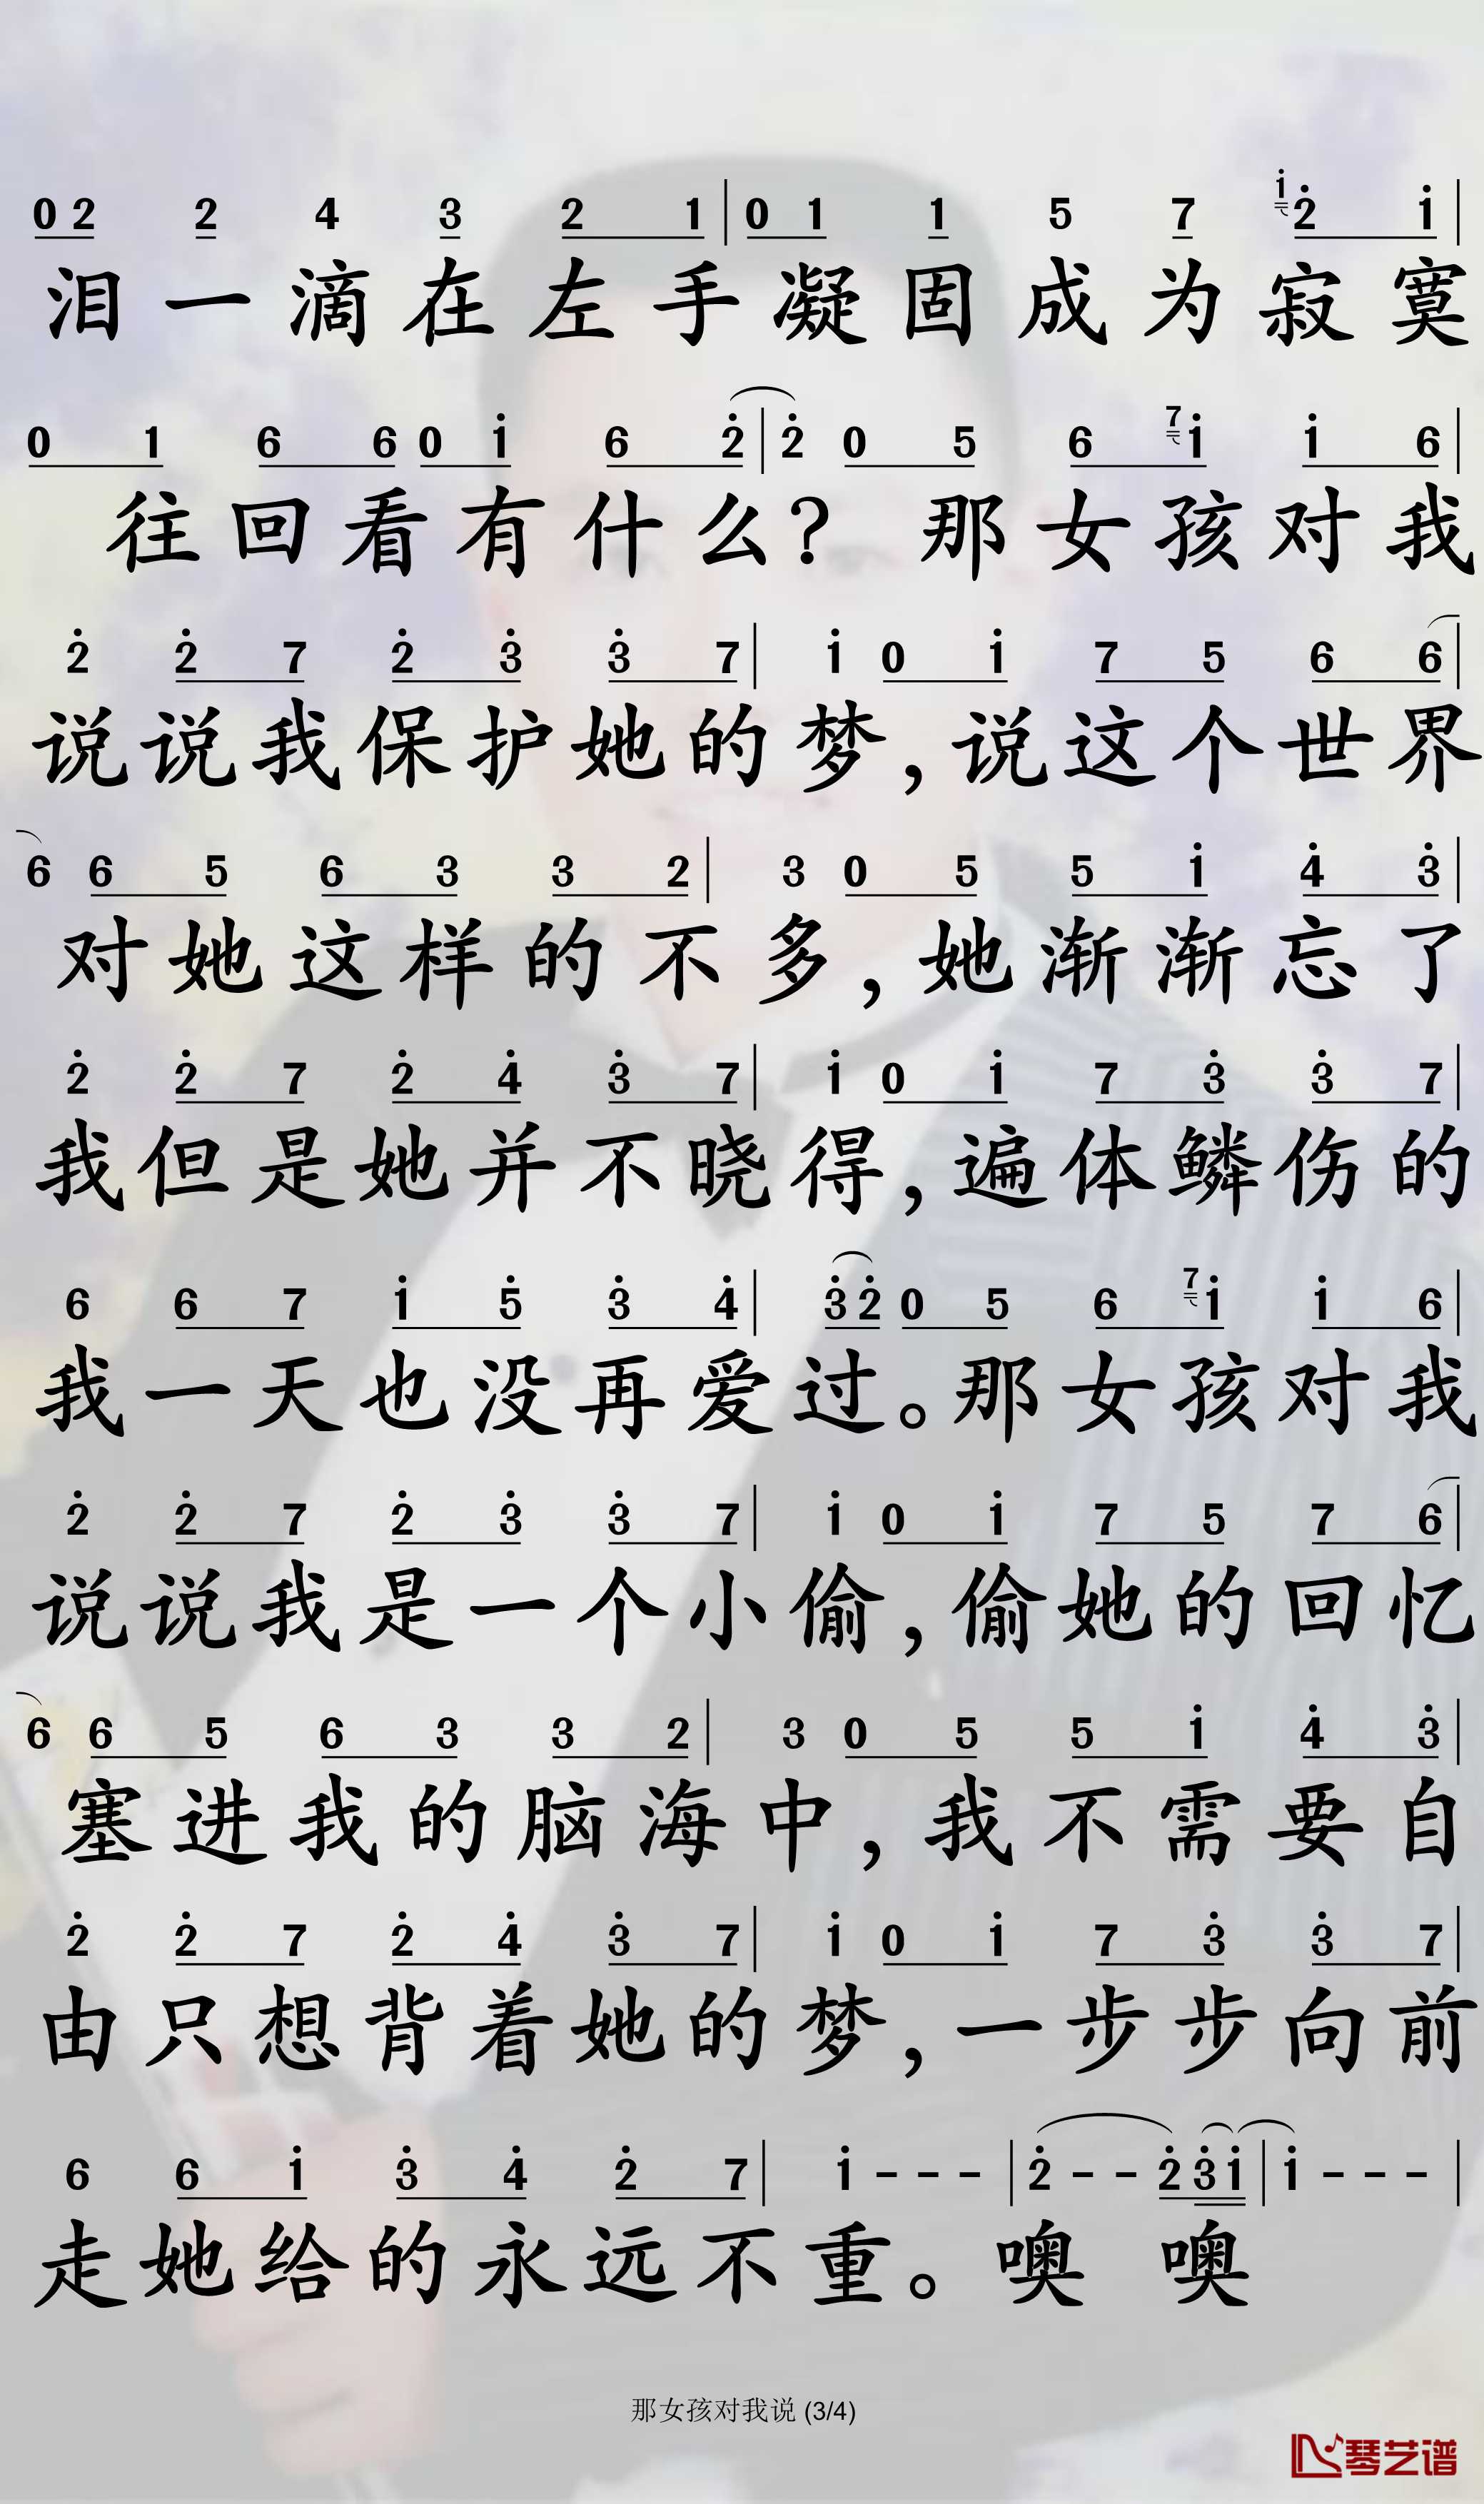 0 2 2 4 3 2 1 | 0 1 1 5 7 i 2̇ i |
泪一滴在左手凝固成为寂寞
0 1 6 6 0 i 6 2̇ | 2̇ 0 5 6 7 i i 6 |
往回看有什么？那女孩对我
2̇ 2̇ 7 2̇ 3̇ 3̇ 7 | i 0 i 7 5 6 6 |
说说我保护她的梦，说这个世界
6 6 5 6 3 3 2 | 3 0 5 5 i 4̇ 3̇ |
对她这样的不多，她渐渐忘了
2̇ 2̇ 7 2̇ 4̇ 3̇ 7 | i 0 i 7 3̇ 3̇ 7 |
我但是她并不晓得，遍体鳞伤的
6 6 7 i 5̇ 3̇ 4̇ | 3̇ 2̇ 0 5 6 7 i i 6 |
我一天也没再爱过。那女孩对我
2̇ 2̇ 7 2̇ 3̇ 3̇ 7 | i 0 i 7 5 7 6 |
说说我是一个小偷，偷她的回忆
6 6 5 6 3 3 2 | 3 0 5 5 i 4̇ 3̇ |
塞进我的脑海中，我不需要自
2̇ 2̇ 7 2̇ 4̇ 3̇ 7 | i 0 i 7 3̇ 3̇ 7 |
由只想背着她的梦，一步步向前
6 6 i 3̇ 4̇ 2̇ 7 | i - - - | 2̇ - - 2̇ 3̇ i | i - - - |
走她给的永远不重。噢 噢
那女孩对我说 (3/4)
琴艺谱